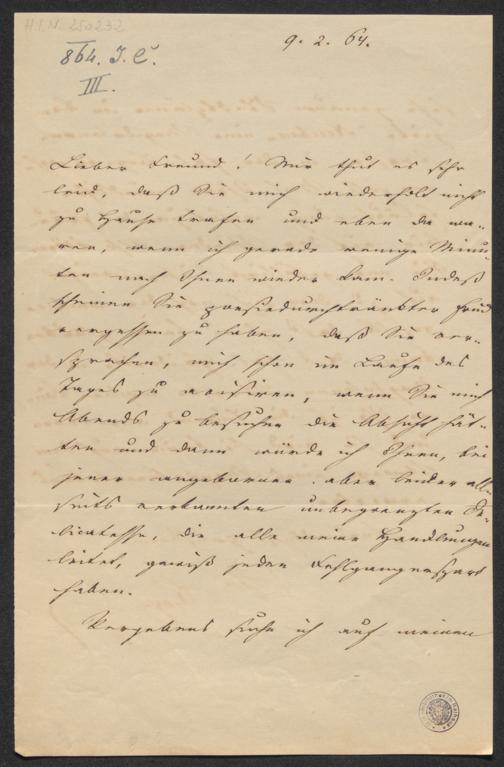 H.I.N. 250232
864. J. C.
III.
9. 2. 64.
Lieber Freund! Mir thut es sehr
leid, daß Sie mich wiederholt nicht
zu Hause trafen und eben da wa-
ren, wenn ich gerade wenige Minu-
ten nach Ihnen wieder kam. Indeß
scheinen Sie poesiedurchtränkter Freund
vergessen zu haben, daß Sie ver-
sprachen, mich schon im Laufe des
Tages zu avisiren, wenn Sie mich
Abends zu besuchen die Absicht hät-
ten und dann würde ich Ihnen, bei
jener angebornen aber leider all-
seits verkannten unbegrenzten De-
licatesse, die alle meine Handlungen
leitet, gewiß jeden Fehlgang erspart
haben.
Vergebens suche ich auf meinem